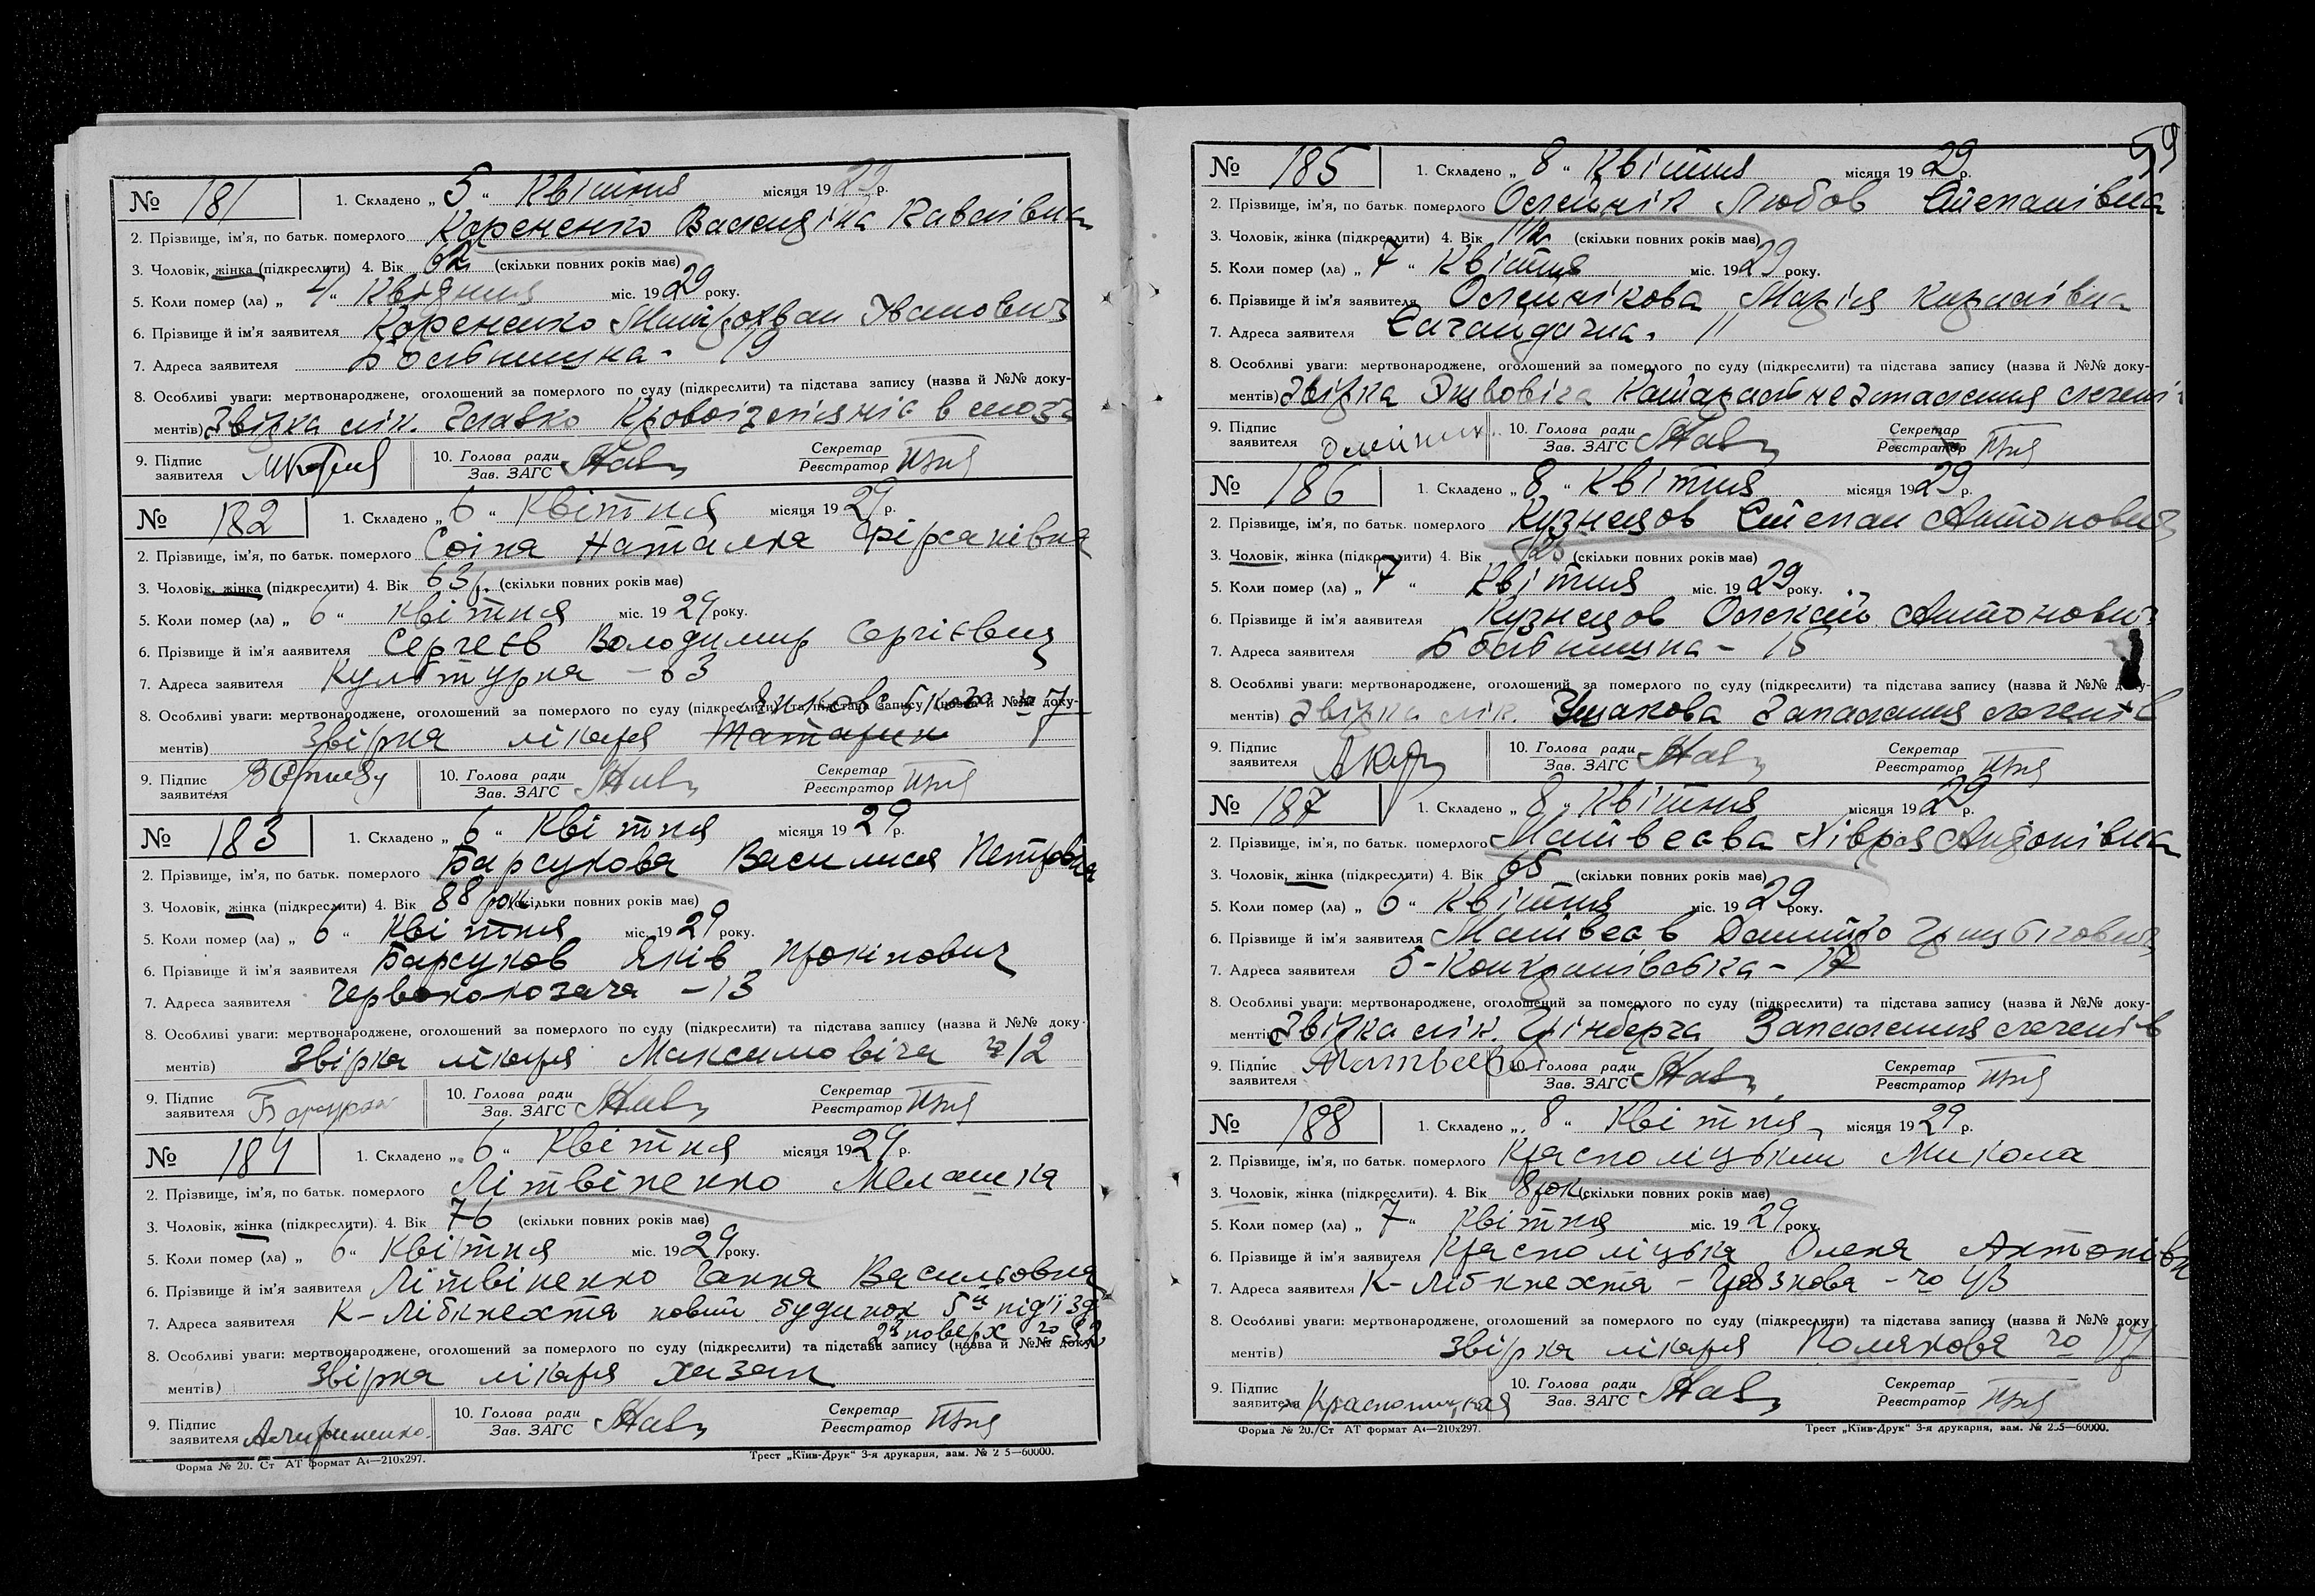 № 181 1. Складено „ 5 “ Квітня місяця 19 29 р.
2. Прізвище, ім'я, по батьк. померлого Корененко Павлівна
3. Чоловік, жінка (підкреслити) 4. Вік 62 (скільки повних років має)
5. Коли помер (ла) „ 4 “ Квітня міс. 19 29 року.
6. Прізвище й ім'я заявителя Корененко Іванович
7. Адреса заявителя 19
8. Особливі уваги: мертвонароджене, оголошений за померлого по суду (підкреслити) та підстава запису (назва й №№ доку-
ментів) Звірка лік. в мозг
9. Підпис заявителя 10. Голова ради Зав. ЗАГС Секретар Реєстратор
№ 182 1. Складено „ 6 “ Квітня місяця 19 29 р.
2. Прізвище, ім'я, по батьк. померлого Соіна Наталка Фірсанівна
3. Чоловік, жінка (підкреслити) 4. Вік 63 р. (скільки повних років має)
5. Коли помер (ла) „ 6 “ квітня міс. 19 29 року.
6. Прізвище й ім'я заявителя Сергеєв Володимир Сергієвич
7. Адреса заявителя Культурна
8. Особливі уваги: мертвонароджене, оголошений за померлого по суду (підкреслити) та підстава запису (назва й №№ доку-
ментів) Звірка лікаря
9. Підпис заявителя 10. Голова ради Зав. ЗАГС Секретар Реєстратор
№ 183 1. Складено „ 6 “ Квітня місяця 19 29 р.
2. Прізвище, ім'я, по батьк. померлого Барсукова Василися Петрівна
3. Чоловік, жінка (підкреслити) 4. Вік 88 рок. (скільки повних років має)
5. Коли помер (ла) „ 6 “ Квітня міс. 19 29 року.
6. Прізвище й ім'я заявителя Барсуков Яків Прокіпович
7. Адреса заявителя Червонокозача – 13
8. Особливі уваги: мертвонароджене, оголошений за померлого по суду (підкреслити) та підстава запису (назва й №№ доку-
ментів) Звірка лікаря Максимовіча 12
9. Підпис заявителя 10. Голова ради Зав. ЗАГС Секретар Реєстратор
№ 184 1. Складено „ 6 “ Квітня місяця 19 29 р.
2. Прізвище, ім'я, по батьк. померлого Літвіненко Мелашка
3. Чоловік, жінка (підкреслити). 4. Вік 76 (скільки повних років має)
5. Коли помер (ла) „ 6 “ Квітня міс. 19 29 року.
6. Прізвище й ім'я заявителя Літвіненко Ганна Васильовна
7. Адреса заявителя К-Лібкнехта новий будинок 5й під'їзд
2й поверх
8. Особливі уваги: мертвонароджене, оголошений за померлого по суду (підкреслити) та підстава запису (назва й №№ доку-
ментів) Звірка лікаря Хазан
9. Підпис заявителя 10. Голова ради Зав. ЗАГС Секретар Реєстратор
Форма № 20. Ст АТ формат А4—210х297. Трест „Київ-Друк“ 3-я друкарня, зам. № 2 5—60000.
59
№ 185 1. Складено „ 8 “ Квітня місяця 19 29 р.
2. Прізвище, ім'я, по батьк. померлого Олейнік Любов Степанівна
3. Чоловік, жінка (підкреслити) 4. Вік 1 1/2 (скільки повних років має)
5. Коли помер (ла) „ 7 “ Квітня міс. 19 29 року.
6. Прізвище й ім'я заявителя Олейнікова Марія
7. Адреса заявителя Сагайдачна. 11
8. Особливі уваги: мертвонароджене, оголошений за померлого по суду (підкреслити) та підстава запису (назва й №№ доку-
ментів) Звірка легенів
9. Підпис заявителя 10. Голова ради Зав. ЗАГС Секретар Реєстратор
№ 186 1. Складено „ 8 “ Квітня місяця 19 29 р.
2. Прізвище, ім'я, по батьк. померлого Кузнецов Степан Антонович
3. Чоловік, жінка (підкреслити) 4. Вік (скільки повних років має)
5. Коли помер (ла) „ 7 “ Квітня міс. 19 29 року.
6. Прізвище й ім'я заявителя Кузнецов Олексій Антонович
7. Адреса заявителя 15
8. Особливі уваги: мертвонароджене, оголошений за померлого по суду (підкреслити) та підстава запису (назва й №№ доку-
ментів) Звірка лік. Ушакова Запалення легенів
9. Підпис заявителя 10. Голова ради Зав. ЗАГС Секретар Реєстратор
№ 187 1. Складено „ 8 “ Квітня місяця 19 29 р.
2. Прізвище, ім'я, по батьк. померлого Матвеєва Хівря
3. Чоловік, жінка (підкреслити) 4. Вік 65 (скільки повних років має)
5. Коли помер (ла) „ 6 “ Квітня міс. 19 29 року.
6. Прізвище й ім'я заявителя Матвеєв Дмитро
7. Адреса заявителя 5-Кондратівська – 17
8. Особливі уваги: мертвонароджене, оголошений за померлого по суду (підкреслити) та підстава запису (назва й №№ доку-
ментів) Звірка лік. Грінберга Запалення легенів
9. Підпис заявителя 10. Голова ради Зав. ЗАГС Секретар Реєстратор
№ 188 1. Складено „ 8 “ Квітня місяця 19 29 р.
2. Прізвище, ім'я, по батьк. померлого Краснолуцький Микола
3. Чоловік, жінка (підкреслити). 4. Вік 8 рок. (скільки повних років має)
5. Коли помер (ла) „ 7 “ Квітня міс. 19 29 року.
6. Прізвище й ім'я заявителя Олена Антонівн
7. Адреса заявителя К-Лібкнехта
8. Особливі уваги: мертвонароджене, оголошений за померлого по суду (підкреслити) та підстава запису (назва й №№ доку-
ментів) Звірка лікаря Полякова
9. Підпис заявителя 10. Голова ради Зав. ЗАГС Секретар Реєстратор
Форма № 20./Ст АТ формат А4—210х297. Трест „Київ-Друк“ 3-я друкарня, зам. № 2.5—60000.